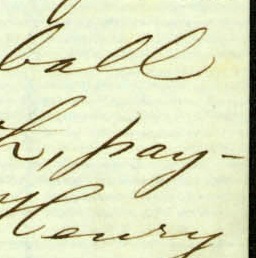 ball
h, pay-
Henry